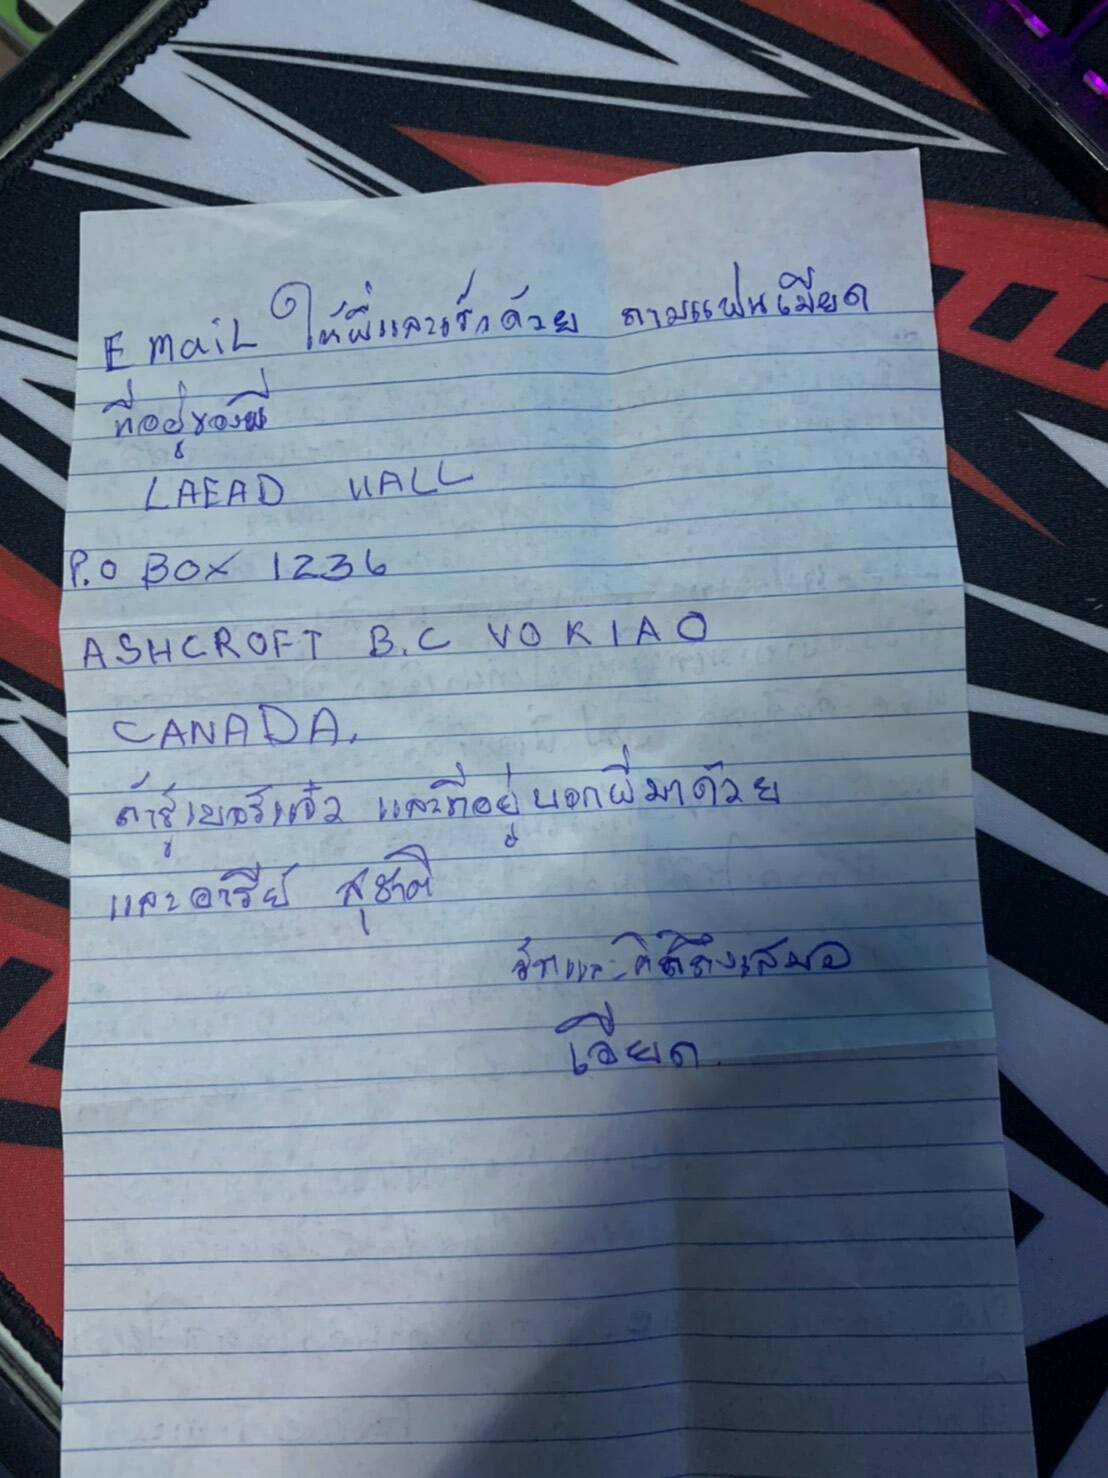 EmaiL ให้พี่และเช็กด้วย ถามแฟนเมียด
ที่อยู่ของพี่
LAEAD HALL
P.O BOX 1236
ASHCROFT B.C VOK1AO
CANADA.
ถ้ารู้เบอร์แจ๋ว และที่อยู่บอกพี่มาด้วย
และอารีย์ สุชาติ
รักและคิดถึงเสมอ
เอียด